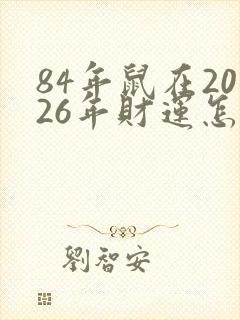 84年鼠在20
26年財運怎
劉智安